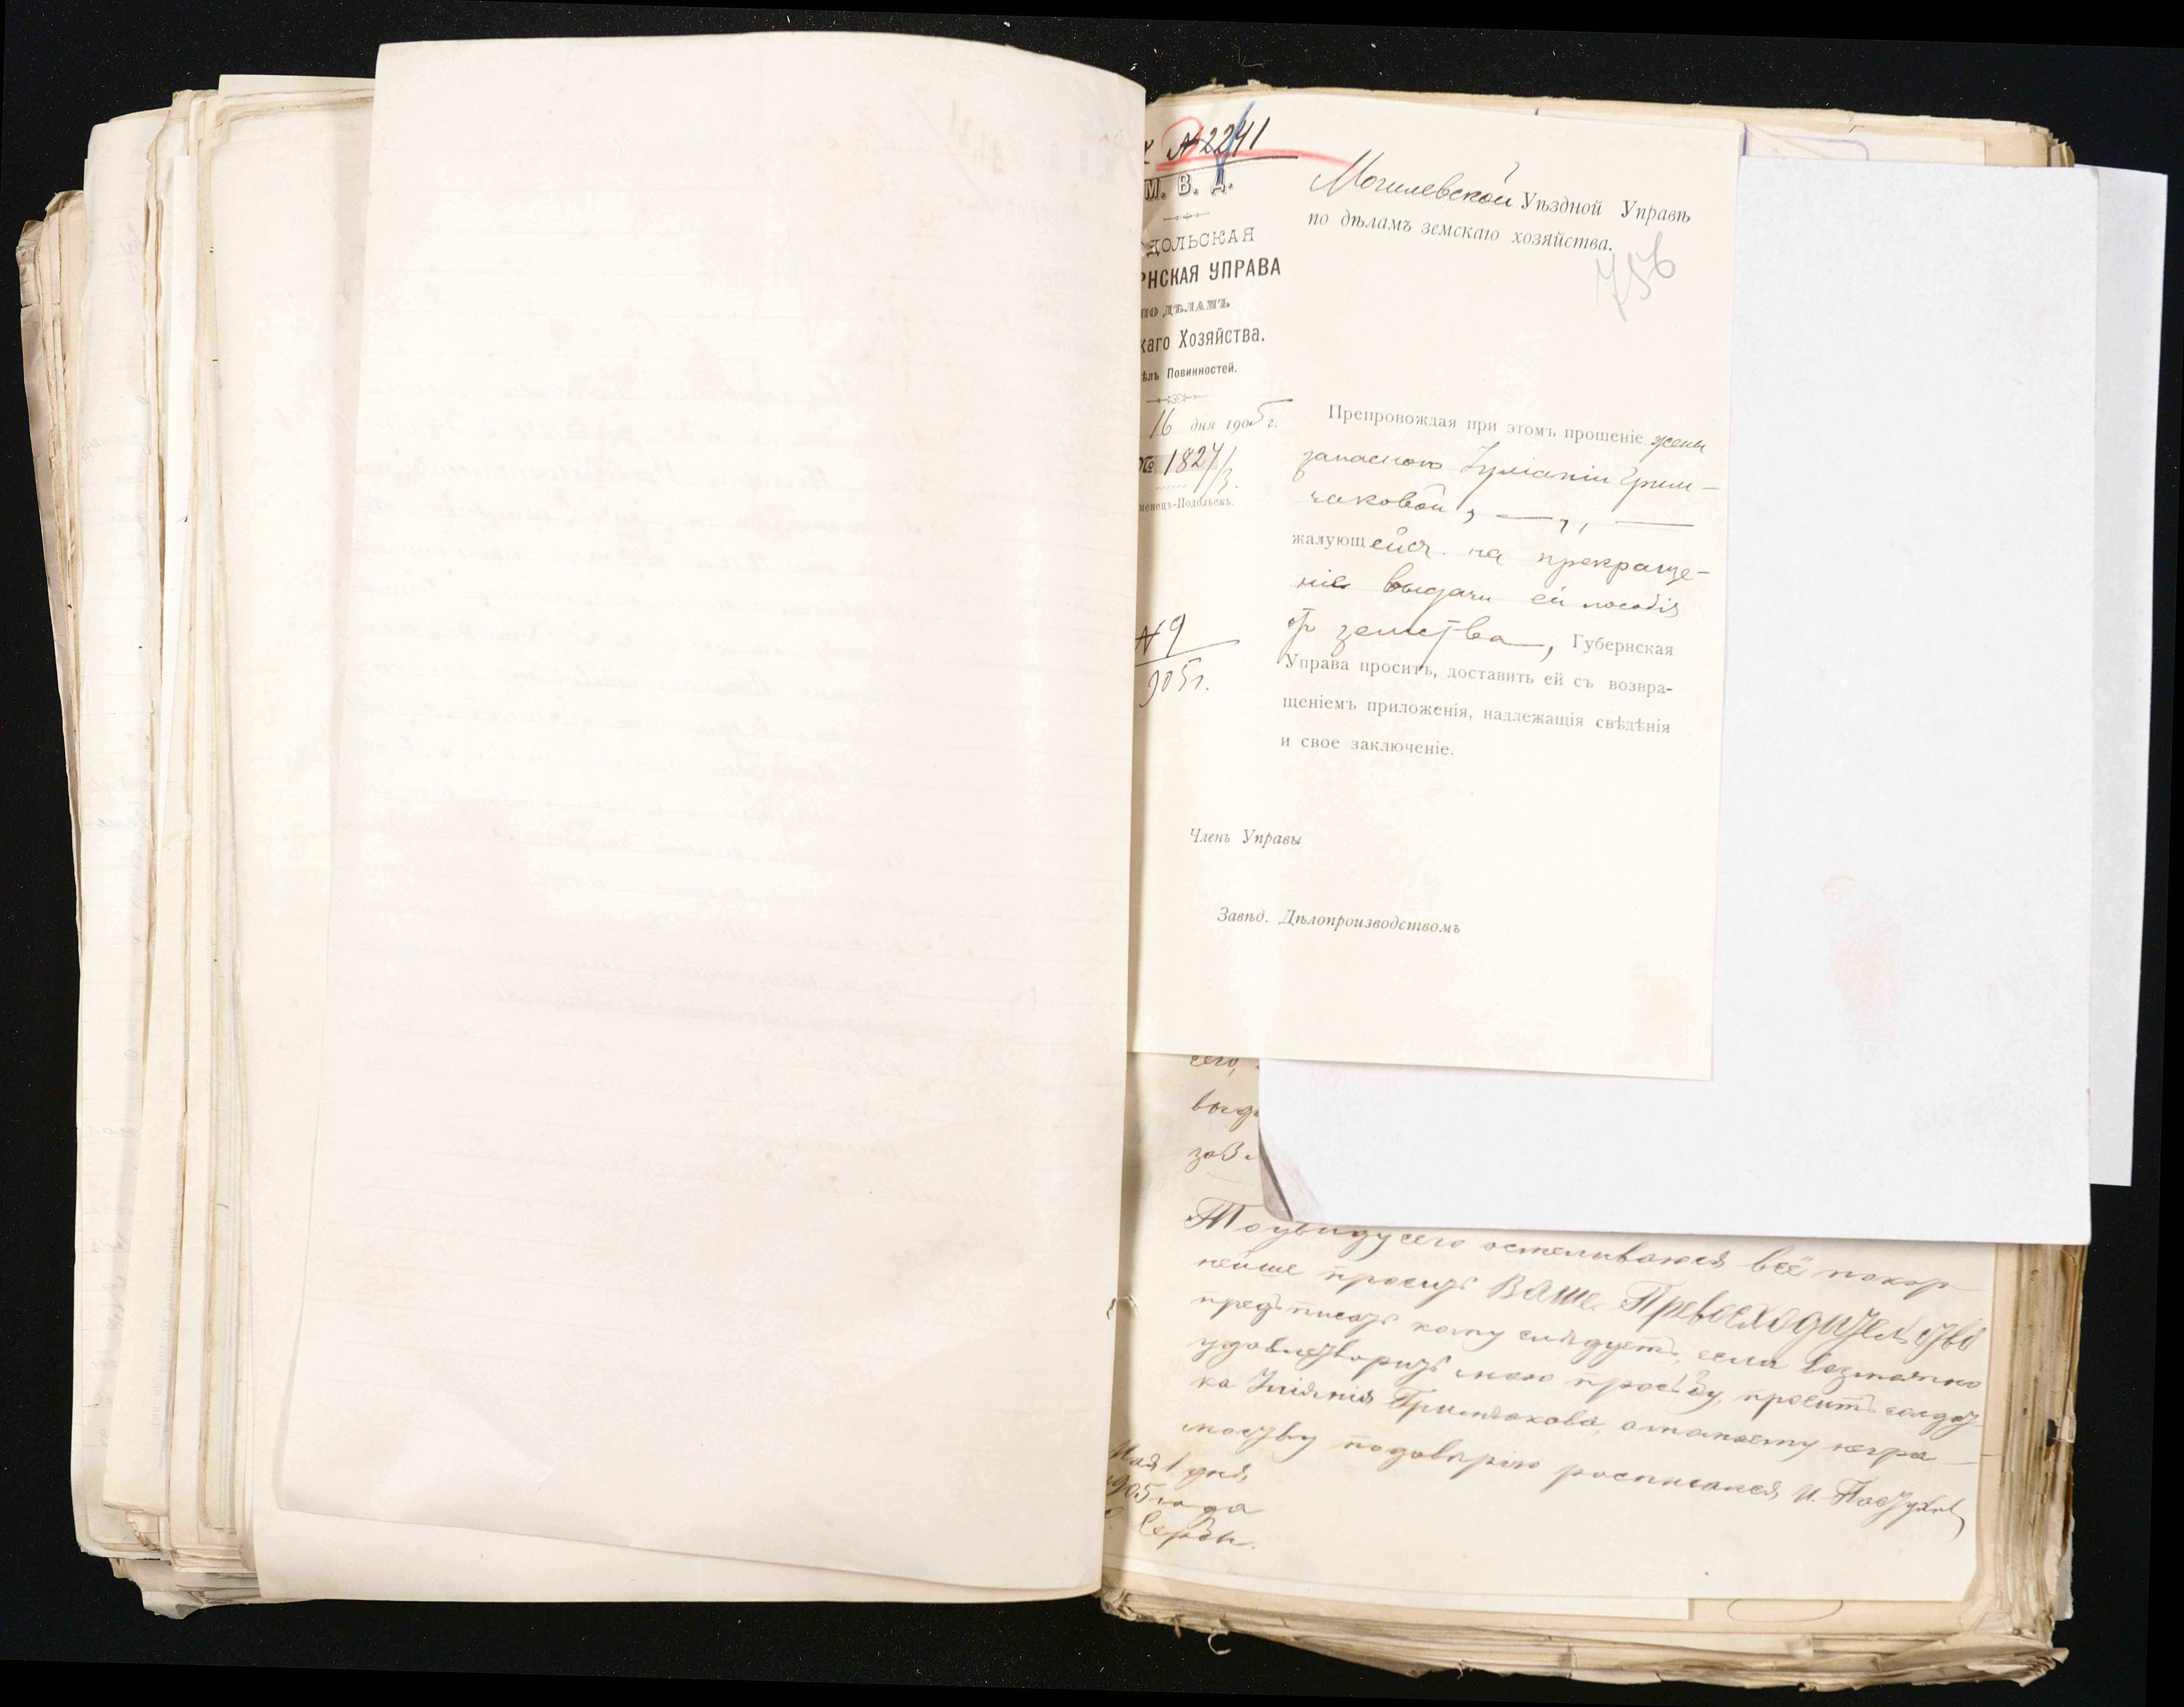 № 2241
М. В. Д.
ДОЛЬСКАЯ
РНСКАЯ УПРАВА
ПО ДѢЛАМЪ
каго Хозяйства.
ѣлъ Повинностей.
16 дня 1905 г.
№ 1824/3.
менецъ-Подольскъ.
№ 9
905 г.
Могилевской Уѣздной Управѣ
по дѣламъ земскаго хозяйства.
756
Препровождая при этомъ прошеніе жены
запасного Іуліаніи Грим-
чаковой,
жалующейся на прекраще-
ніе выдачи ей пособія
отъ земства, Губернская
Управа проситъ, доставить ей съ возвра-
щеніемъ приложенія, надлежащія свѣдѣнія
и свое заключеніе.
Членъ Управы
Завѣд. Дѣлопроизводствомъ
сего,
выда
зов
Поувиду сего осмеливаюся всё покор
нейше просить ВАШЕ Превосходительство
предписать кому слѣдуетъ, если возможно
удовлетворить мою прозьбу, проситъ солдат
ка Іуліянія Гримчакова, а потому негра
мотству подовѣрію росписался И. Пастухъ
Мая 1 дня,
1905 года
с. Сербы.